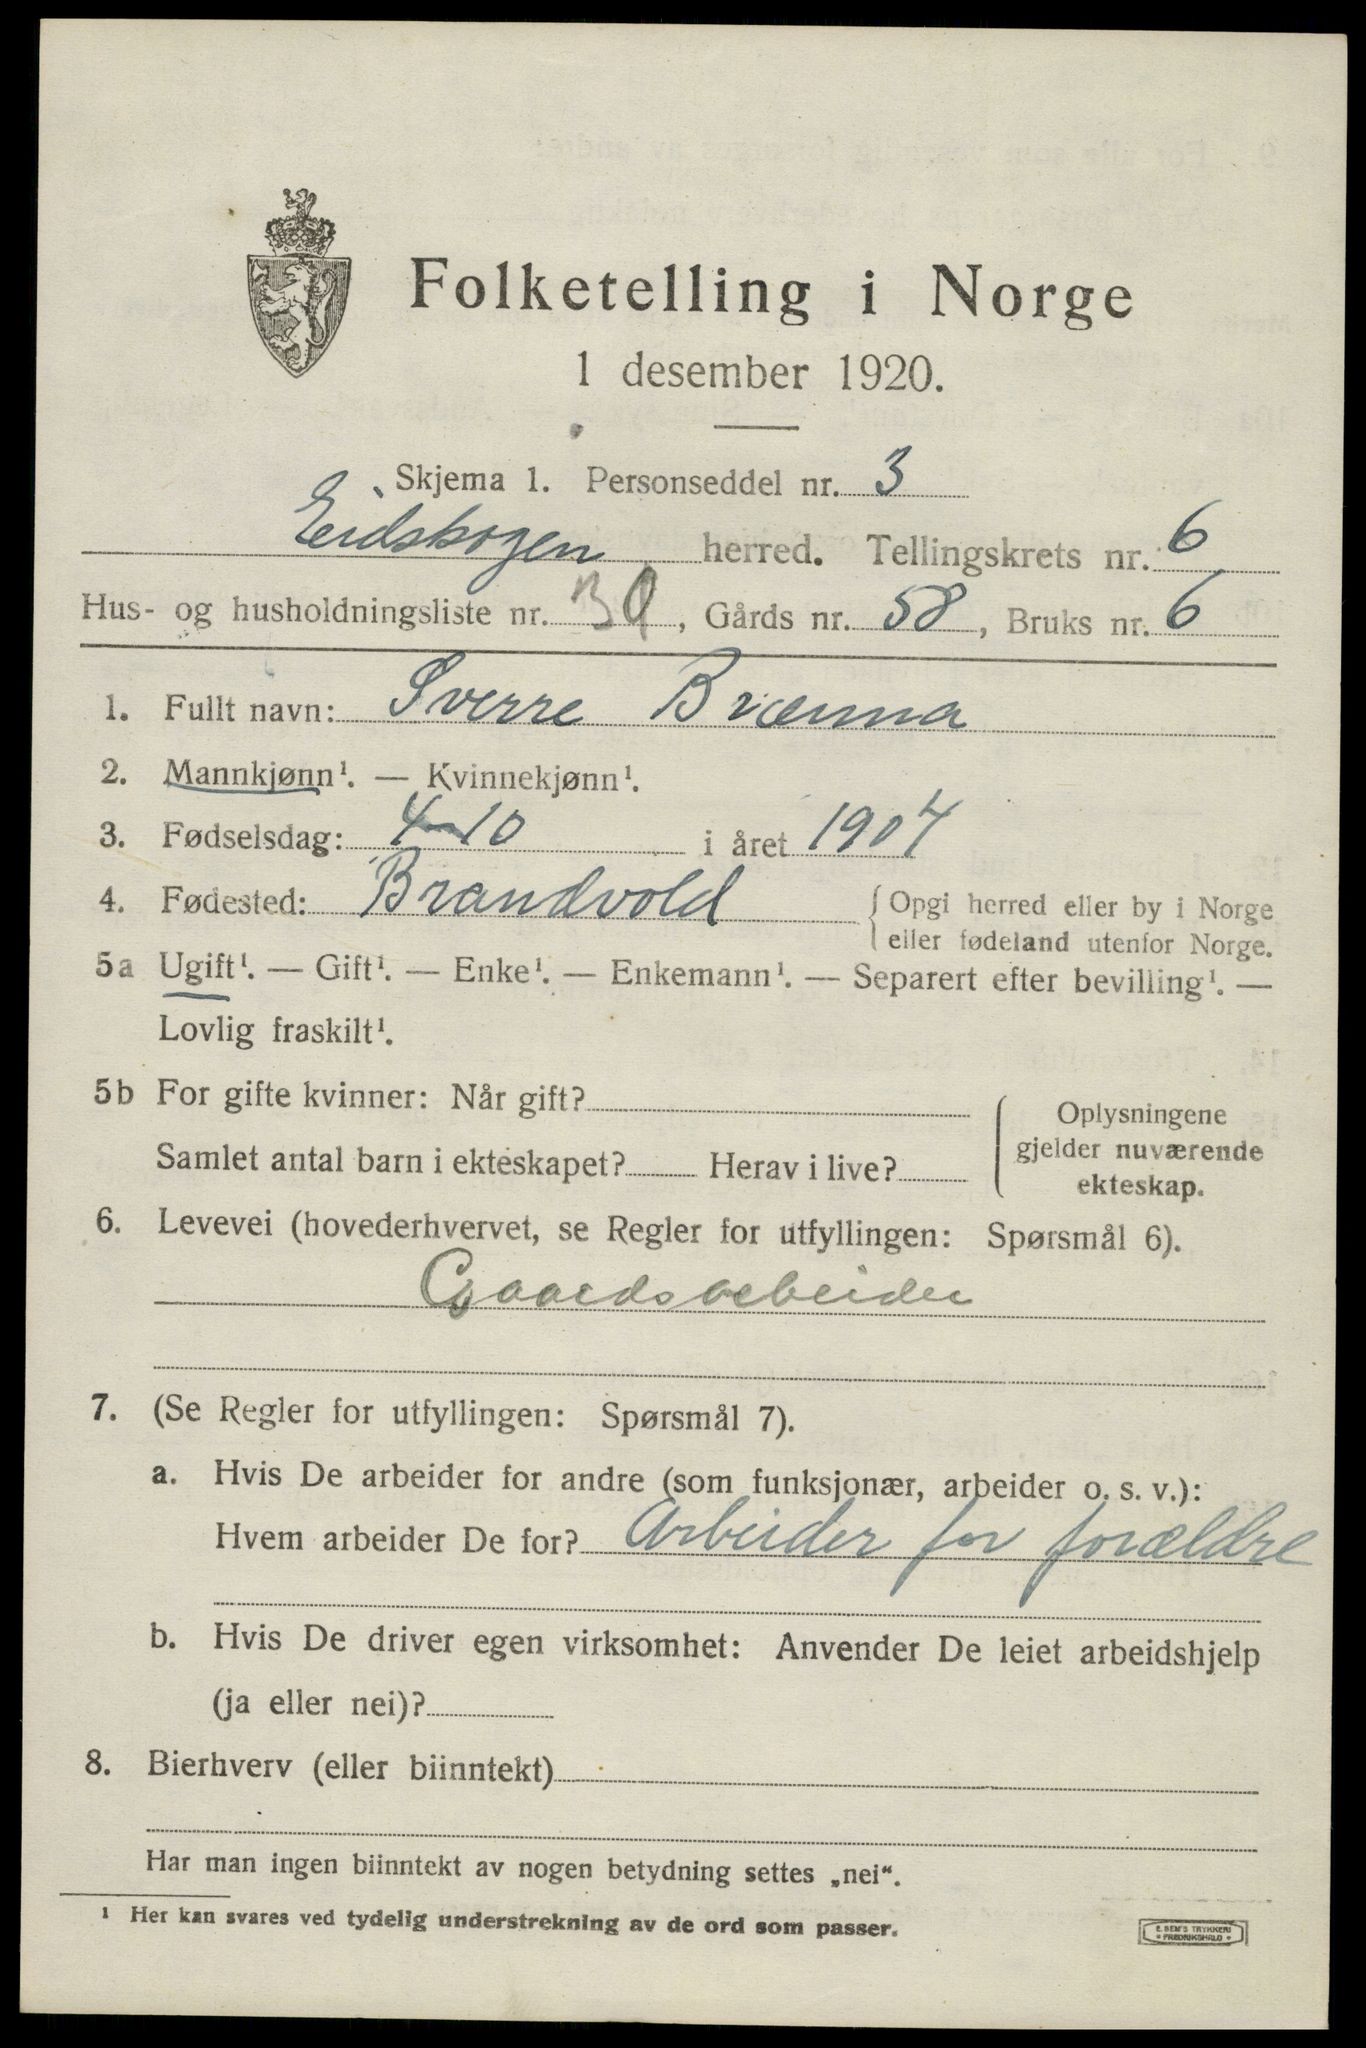 Folketelling i Norge
1 desember 1920.
Skjema 1. Personseddel nr. 3
Eidskogen herred. Tellingskrets nr. 6
Hus- og husholdningsliste nr. , Gårds nr. 58, Bruks nr. 6
1. Fullt navn: Sverre Brænna
2. Mannkjønn¹. — Kvinnekjønn¹.
3. Fødselsdag: 4-10 i året 1904
4. Fødested: Brandvold { Opgi herred eller by i Norge
eller fødeland utenfor Norge.
5a Ugift¹. — Gift¹. — Enke¹. — Enkemann¹. — Separert efter bevilling¹. —
Lovlig fraskilt¹.
5b For gifte kvinner: Når gift?
Samlet antal barn i ekteskapet? Herav i live?
Oplysningene
gjelder nuværende
ekteskap.
6. Levevei (hovederhvervet, se Regler for utfyllingen: Spørsmål 6).
Gaardsarbeider
7. (Se Regler for utfyllingen: Spørsmål 7).
a. Hvis De arbeider for andre (som funksjonær, arbeider o. s. v.):
Hvem arbeider De for? Arbeider for forældre
b. Hvis De driver egen virksomhet: Anvender De leiet arbeidshjelp
(ja eller nei)?
8. Bierhverv (eller biinntekt)
Har man ingen biinntekt av nogen betydning settes „nei“.
¹ Her kan svares ved tydelig understrekning av de ord som passer.
E. SEM'S TRYKKERI
• FREDRIKSHALD •